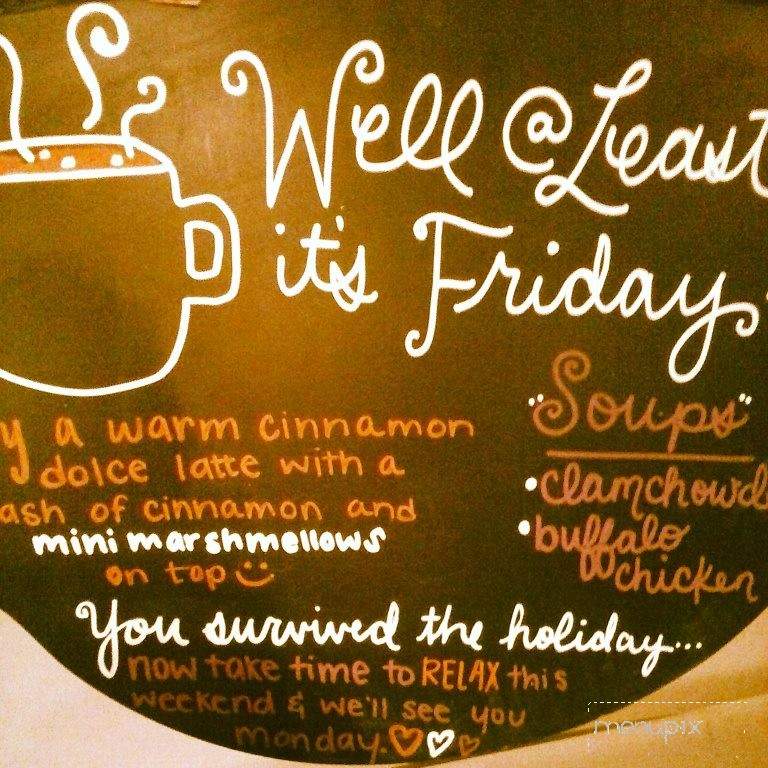 Well @ Least
it's Friday
y a warm cinnamon
dolce latte with a
ash of cinnamon and
mini marshmellows
on top
"Soups"
•clamchowde
•buffalo
chicken
You survived the holiday...
now take time to RELAX this
weekend & we'll see you
monday.
menupix